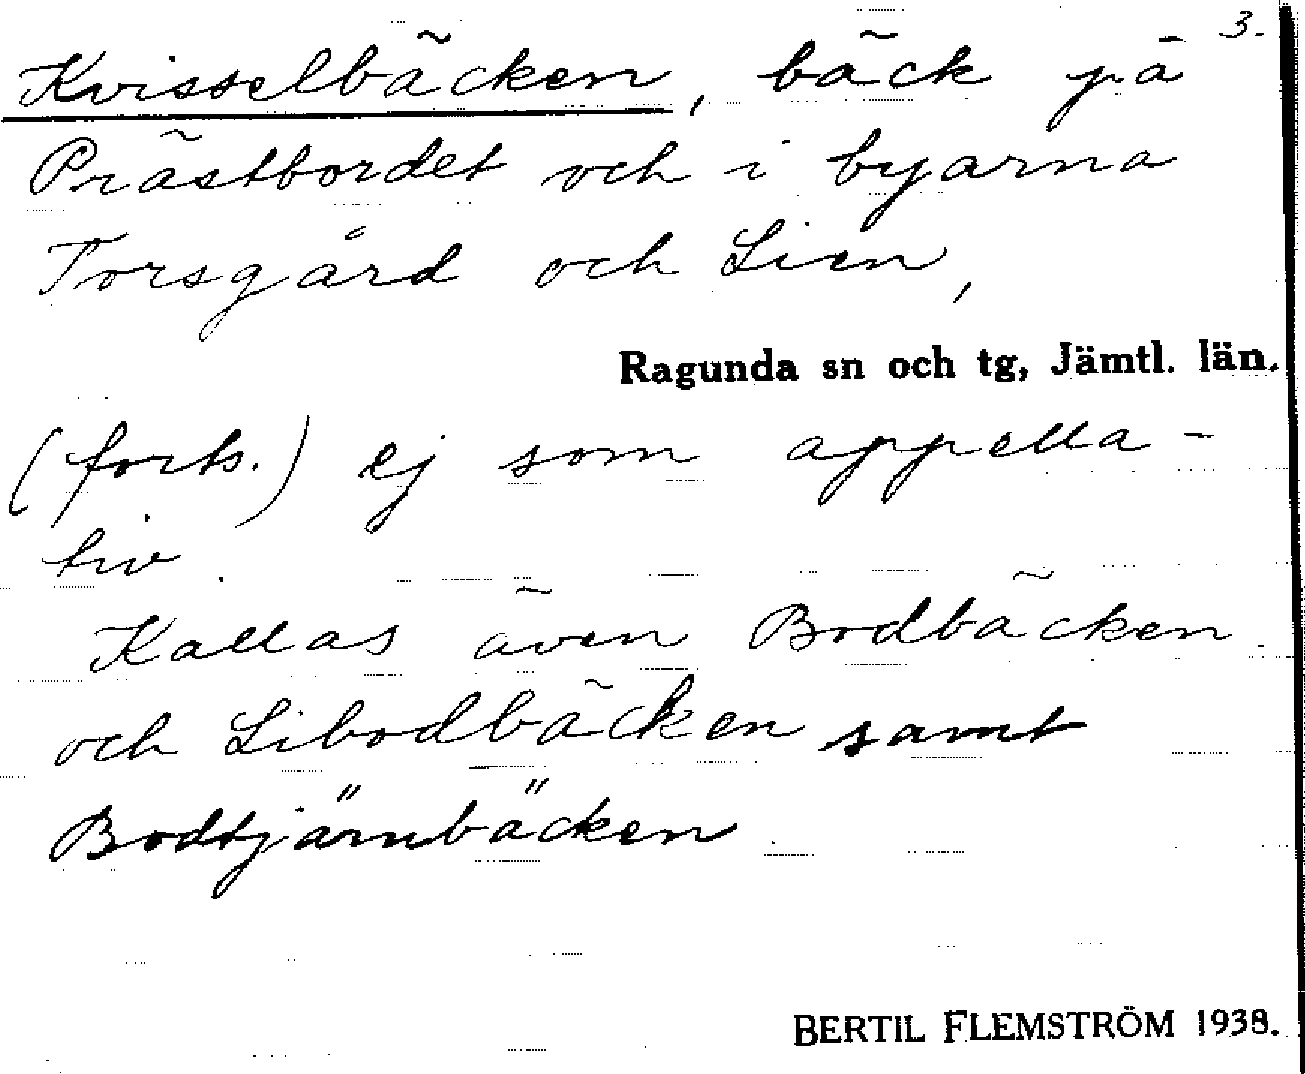 3.
Kvisselbäcken, bäck på
Prästbordet och i byarna
Torsgård och Lien,
Ragunda sn och tg, Jämtl. län.
(forts.) ej som appella-
tiv.
Kallas även Bodbäcken
och Libodbäcken samt
Bodtjärnbäcken
BERTIL FLEMSTRÖM 1938.